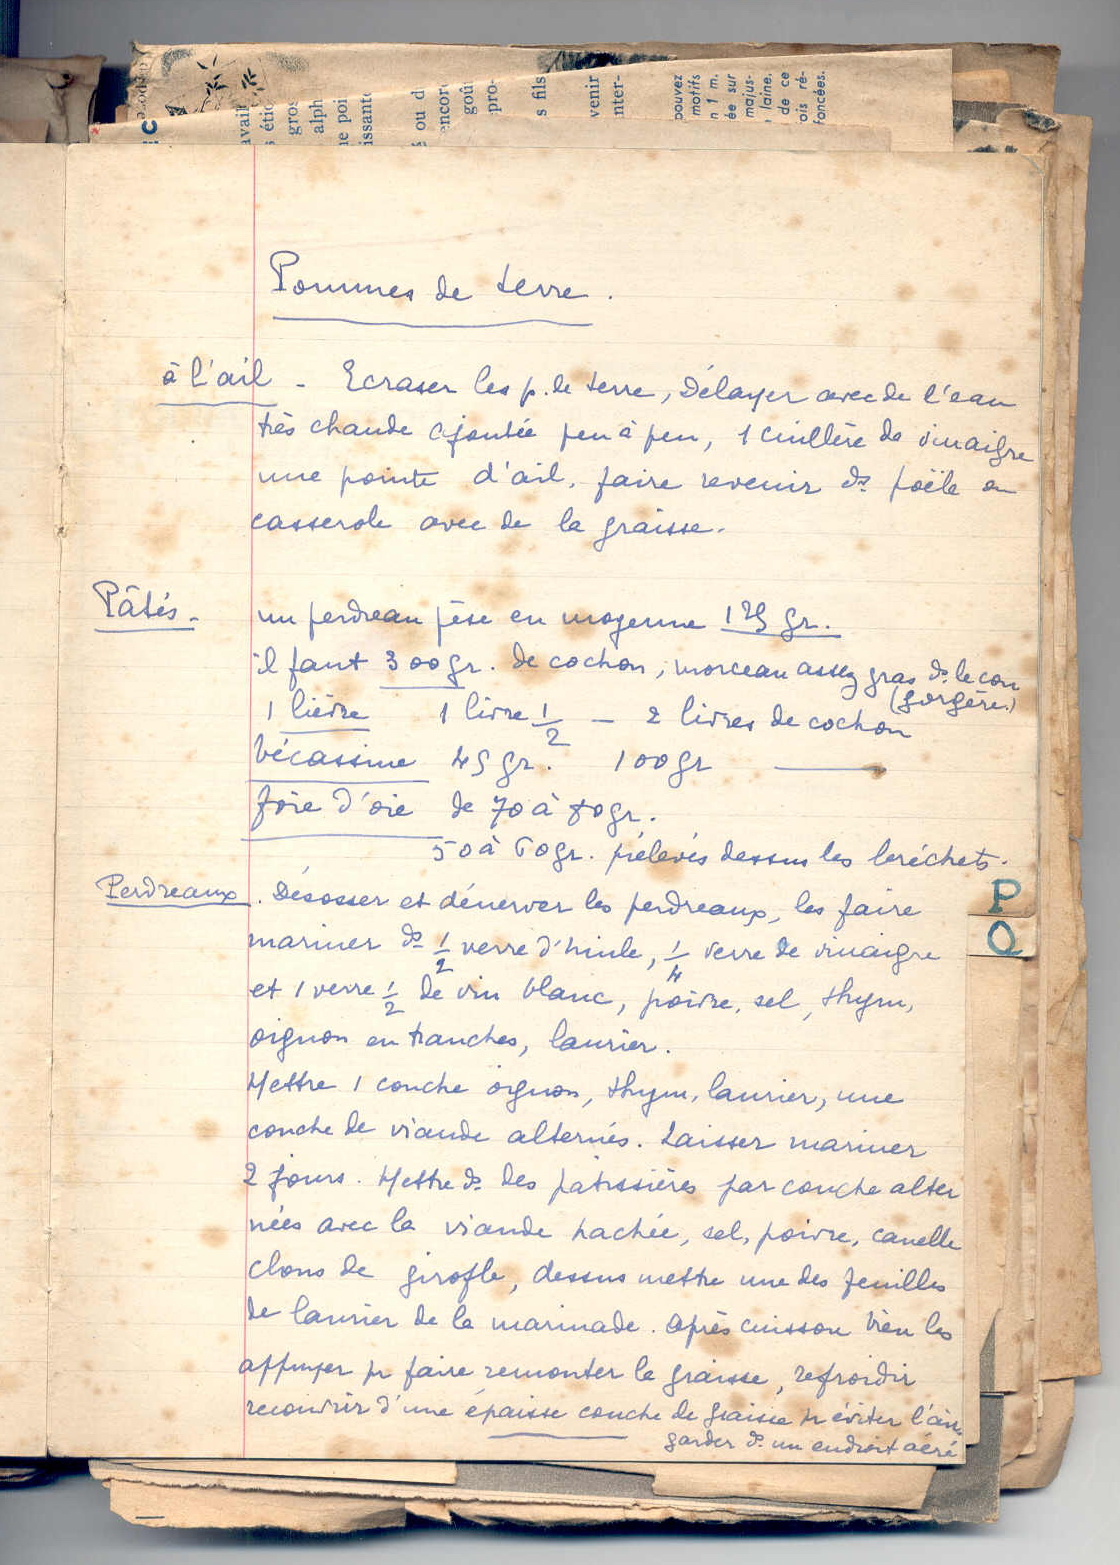 avail
s étio
gros
alph
ne poi
issante
ou d
encore
goû
pro-
s fils
venir
nter-
pouvez
motifs
n 1 m.
ée sur
majus-
laine.
de ce
ois ré-
foncées.
Pommes de terre.
à l'ail - Ecraser les p. de terre, Délayer avec de l'eau
très chaude ajoutée peu à peu, 1 cuillère de vinaigre
une pointe d'ail, faire revenir ds poële ou
casserole avec de la graisse.
Pâtés - un perdreau pèse en moyenne 125 gr.
il faut 300 gr. de cochon, morceau assez gras ds le cou
(gorgère.)
1 lièvre 1 livre 1/2 - 2 livres de cochon
bécassine 45 gr. 100 gr ———
foie d'oie de 70 à 80 gr.
50 à 60 gr. prélevés dessus les bréchets.
Perdreaux. Désosser et dénerver les perdreaux, les faire
mariner ds 1/2 verre d'huile, 1/4 verre de vinaigre
et 1 verre 1/2 de vin blanc, poivre, sel, thym,
oignon en tranches, laurier.
Mettre 1 couche oignon, thym, laurier, une
couche de viande alternés. Laisser mariner
2 jours. Mettre ds des patissières par couche alter
nées avec la viande hachée, sel, poivre, canelle
clous de girofle, dessus mettre une des feuilles
de laurier de la marinade. Après cuisson bien les
appuyer pr faire remonter la graisse, refroidir
recouvrir d'une épaisse couche de graisse pr éviter l'air.
garder ds un endroit aéré
P
Q